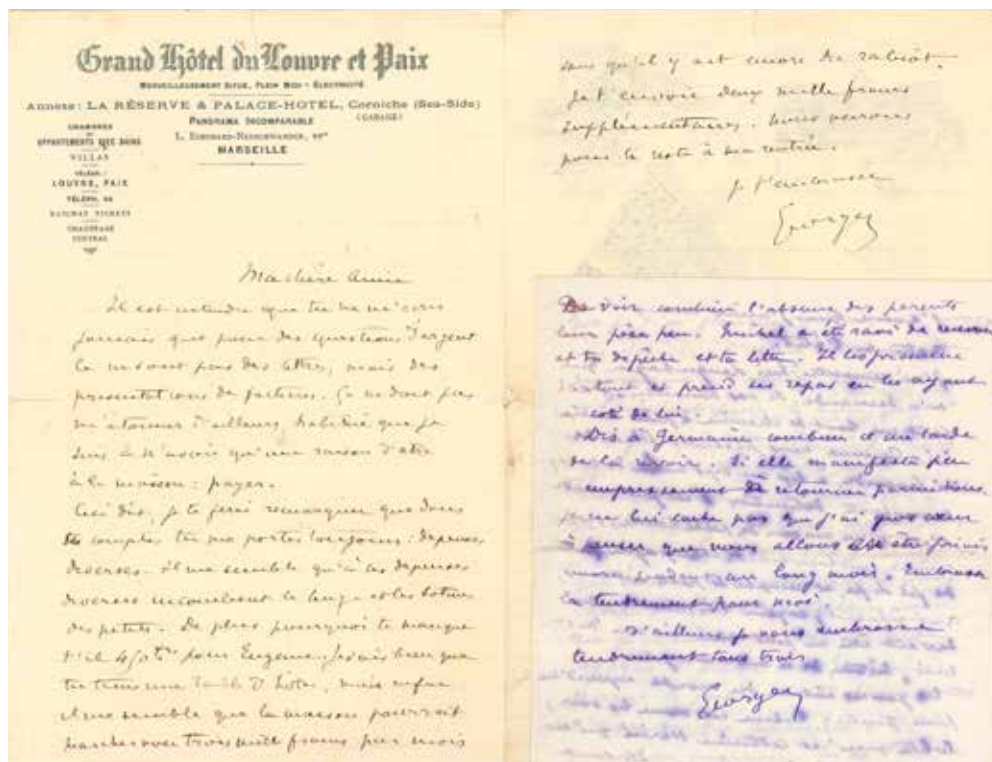 Grand Hôtel du Louvre et Paix
MERVEILLEUSEMENT SITUÉ, PLEIN MIDI - ÉLECTRICITÉ
Annexe: LA RÉSERVE & PALACE-HOTEL, Corniche (Sea-Side)
(GARAGE)
PANORAMA INCOMPARABLE
MARSEILLE
CHAMBRES
ET
APPARTEMENTS AVEC BAINS
VILLAS
TÉLÉGR.:
LOUVRE, PAIX
RAILWAY TICKETS
CHAUFFAGE
CENTRAL
Ma chère Amie
Il est entendu que tu ne m'écris
jamais que pour des questions d'argent
Ce ne sont pas des lettres, mais des
présentations de factures. Ça ne doit pas
m'étonner d'ailleurs, habitué que je
suis à n'avoir qu'une raison d'être
à la maison : payer.
Ceci dit, je te ferai remarquer que dans
comptes tu me portes toujours : dépenses
diverses. Il me semble qu'à ces dépenses
diverses incombent le linge et les bottines
des petits. De plus pourquoi te manque
t'il pour Eugénie. Je sais bien que
tu tiens une table d'hôtes, mais enfin
il me semble que la maison pourrait
marcher avec trois mille francs par mois
sans qu'il y ait encore du rabiot.
Je t'envoie deux mille francs
supplémentaires. Nous verrons
pour le reste à ma rentrée.
Je t'embrasse
Georges
De voir combien l'absence des parents
leur pèse peu. Michel a été ravi de recevoir
et ta dépêche et ta lettre. Il les promène
partout et prend ses repas en les ayant
à côté de lui.
Dis à Germaine combien il me tarde
de la revoir. Si elle manifeste peu
d'empressement de retourner parmi nous
ne lui cache pas que j'ai gros cœur
à penser que nous allons être privés
un long mois. Embrasse
la tendrement pour moi.
D'ailleurs je vous embrasse
tendrement tous trois
Georges